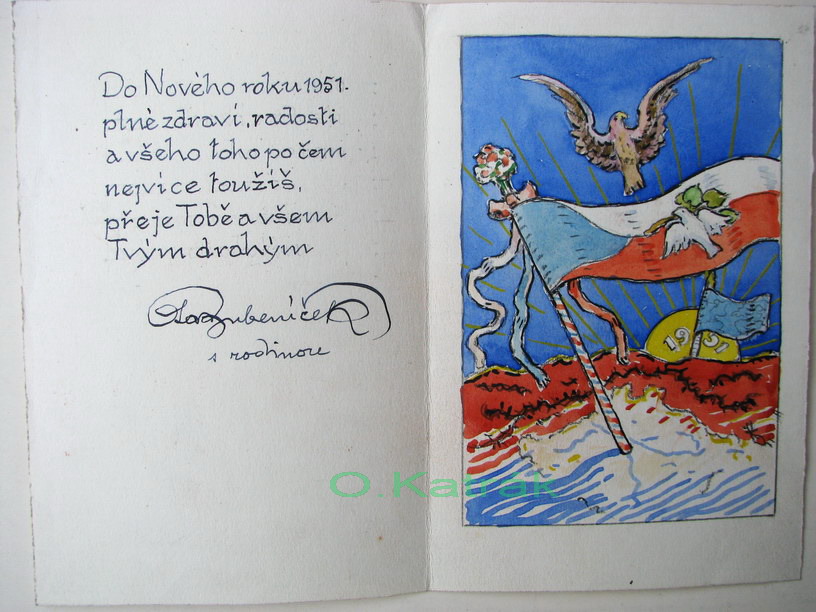 Do Nového roku 1951.
plnè zdraví, radosti
a všeho toho po čem
nejvíce toužíš,
přeje Tobě a všem
Tvým drahým
s rodinou
1951
O.Katrák